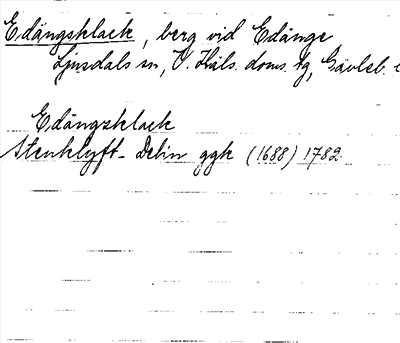 Edängsklack, berg vid Edänge
Ljusdals sn, V. Häls. doms. tg, Gävleb. l
Edängzklack
Stenklyft- Debin ggk (1688) 1782